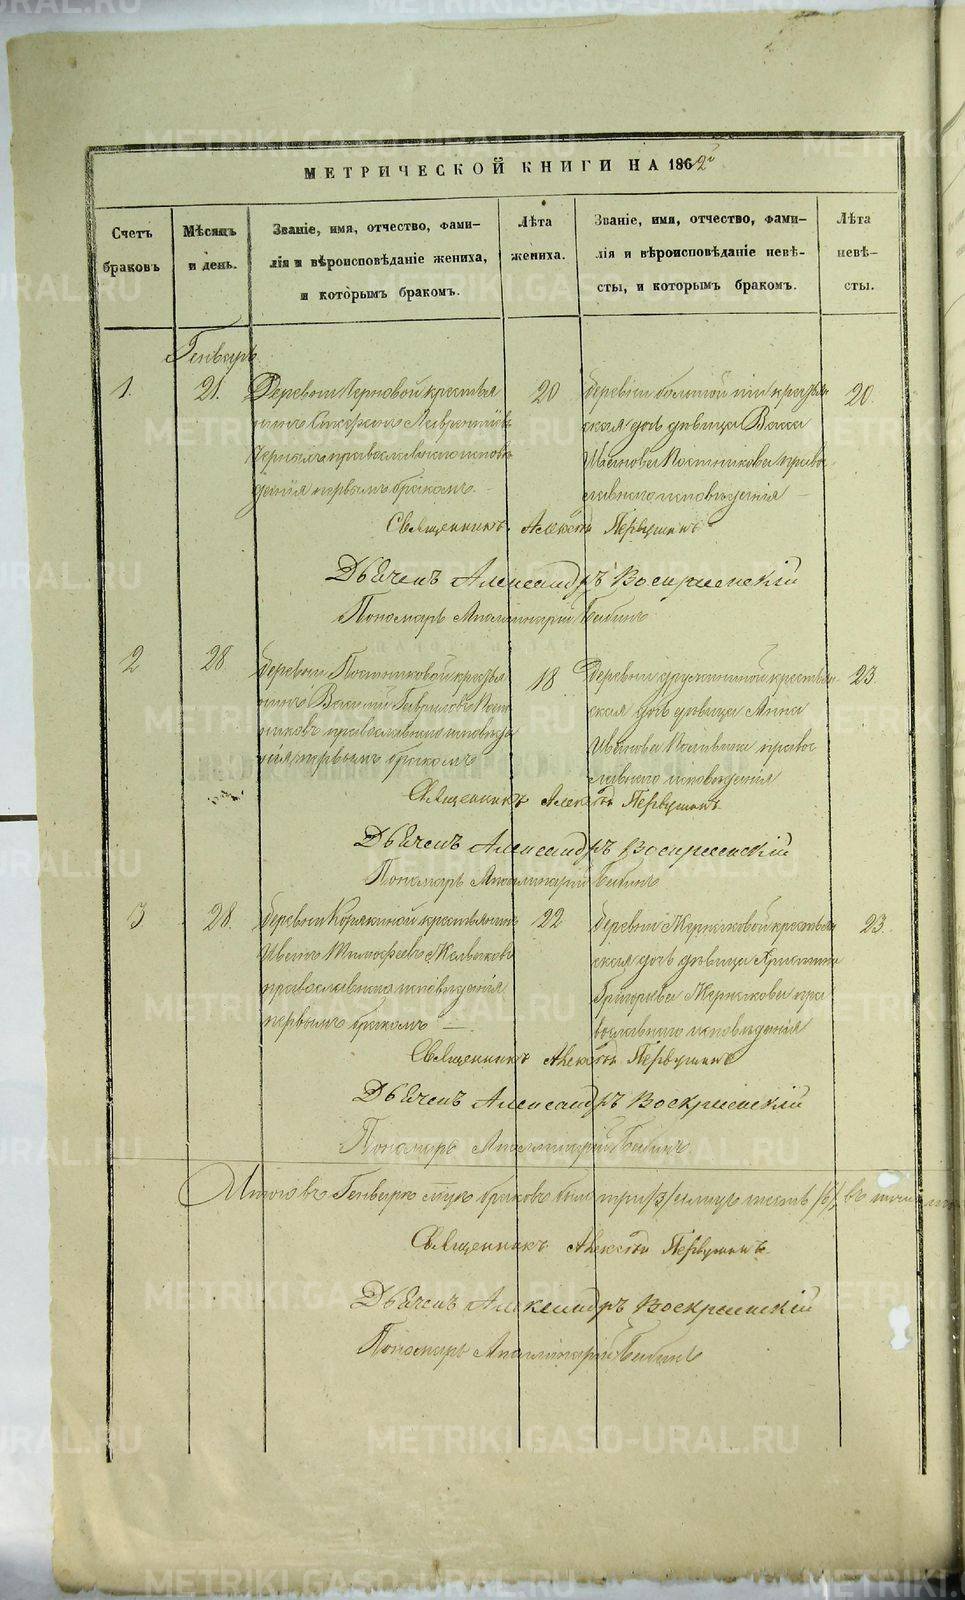 МЕТРИЧЕСКОЙ КНИГИ НА 1862й
Счетъ браковъ
Мѣсяцъ и день.
Званіе, имя, отчество, фами-
лія и вѣроисповѣданіе жениха,
и которымъ бракомъ.
Лѣта жениха.
Званіе, имя, отчество, фами-
лія и вѣроисповѣданіе невѣ-
сты, и которымъ бракомъ.
Лѣта невѣ-
сты.
Генварь
1. 21.
Деревни Черновой крестья
нинъ Стефанъ Лаврентіевъ
Черныхъ православнаго исповѣ
данія первымъ бракомъ. –
20
Деревни крестьян
ская дочь дѣвица Васса
Иванова Постникова право
славнаго исповѣданія –
20.
Священникъ Алексѣй Первушинъ
Дьячекъ Александръ Воскресенскій
Пономарь Аполлинарій Бибинъ
2 28.
Деревни Постниковой крестья
нинъ Василій Гавриловъ Пост
никовъ православнаго исповѣда
нія первымъ бракомъ
18
Деревни крестьян
ская дочь дѣвица Анна
Иванова правос
лавнаго исповѣданія
23
Священникъ Алексѣй Первушинъ
Дьячекъ Александръ Воскресенскій
Пономарь Аполлинарій Бибинъ
3 28.
Деревни Корякиной крестьянинъ
Иванъ Тимофеевъ
православнаго исповѣданія
первымъ бракомъ –
22
Деревни крестьян
ская дочь дѣвица Христина
Григорьева пра
вославнаго исповѣданія
23.
Священникъ Алексѣй Первушинъ
Дьячекъ Александръ Воскресенскій
Пономарь Аполлинарій Бибинъ
Итого въ Генварѣ м-цѣ браковъ было три /3/ а лицъ шесть /6/ въ томъ
Священникъ Алексѣй Первушинъ
Дьячекъ Александръ Воскресенскій
Пономарь Аполлинарій Бибинъ
METRIKI.GASO-URAL.RU